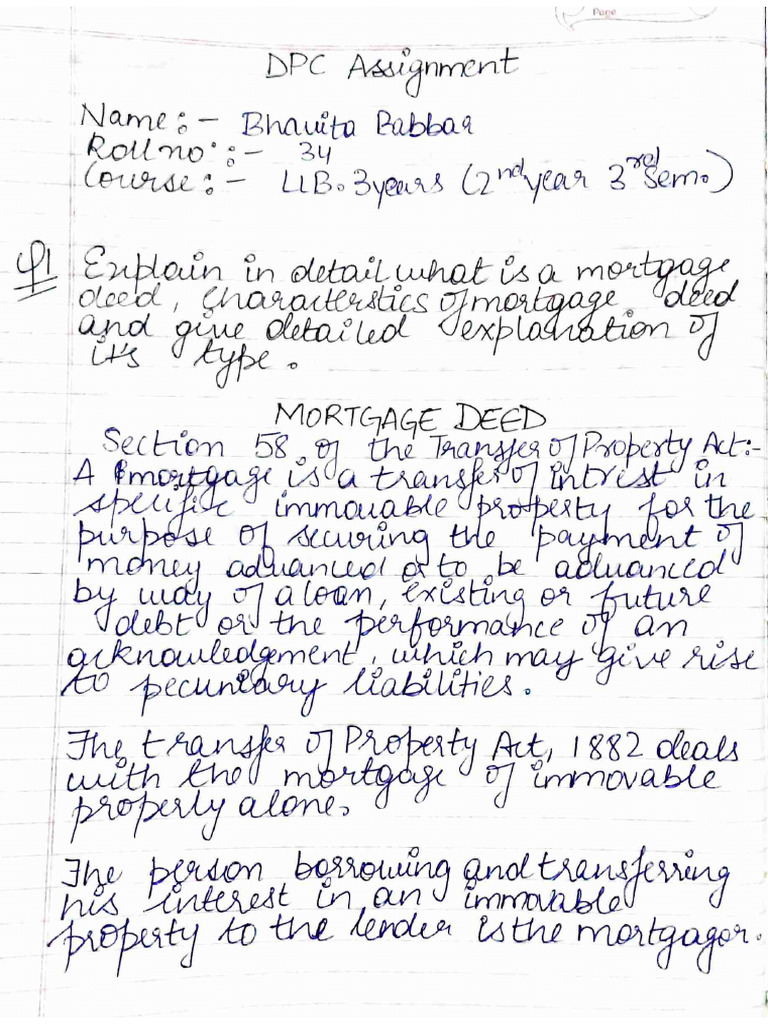 Page
DPC Assignment
Name:- Bhavita Babbar
Roll no.:- 34
Course:- LLB. 3years (2nd year 3rd Sem.)
Q1 Explain in detail what is a mortgage
deed, characterstics of mortgage deed
and give detailed explanation of
it's type.
MORTGAGE DEED
Section 58 of the Transfer of Property Act:-
A mortgage is a transfer of intrest in
specific immovable property for the
purpose of securing the payment of
money advanced or to be advanced
by way of a loan, existing or future
debt or the performance of an
acknowledgement, which may give rise
to pecuniary liabilities.
The transfer of Property Act, 1882 deals
with the mortgage of immovable
property alone.
The person borrowing and transferring
his interest in an immovable
property to the lender is the mortgagor.